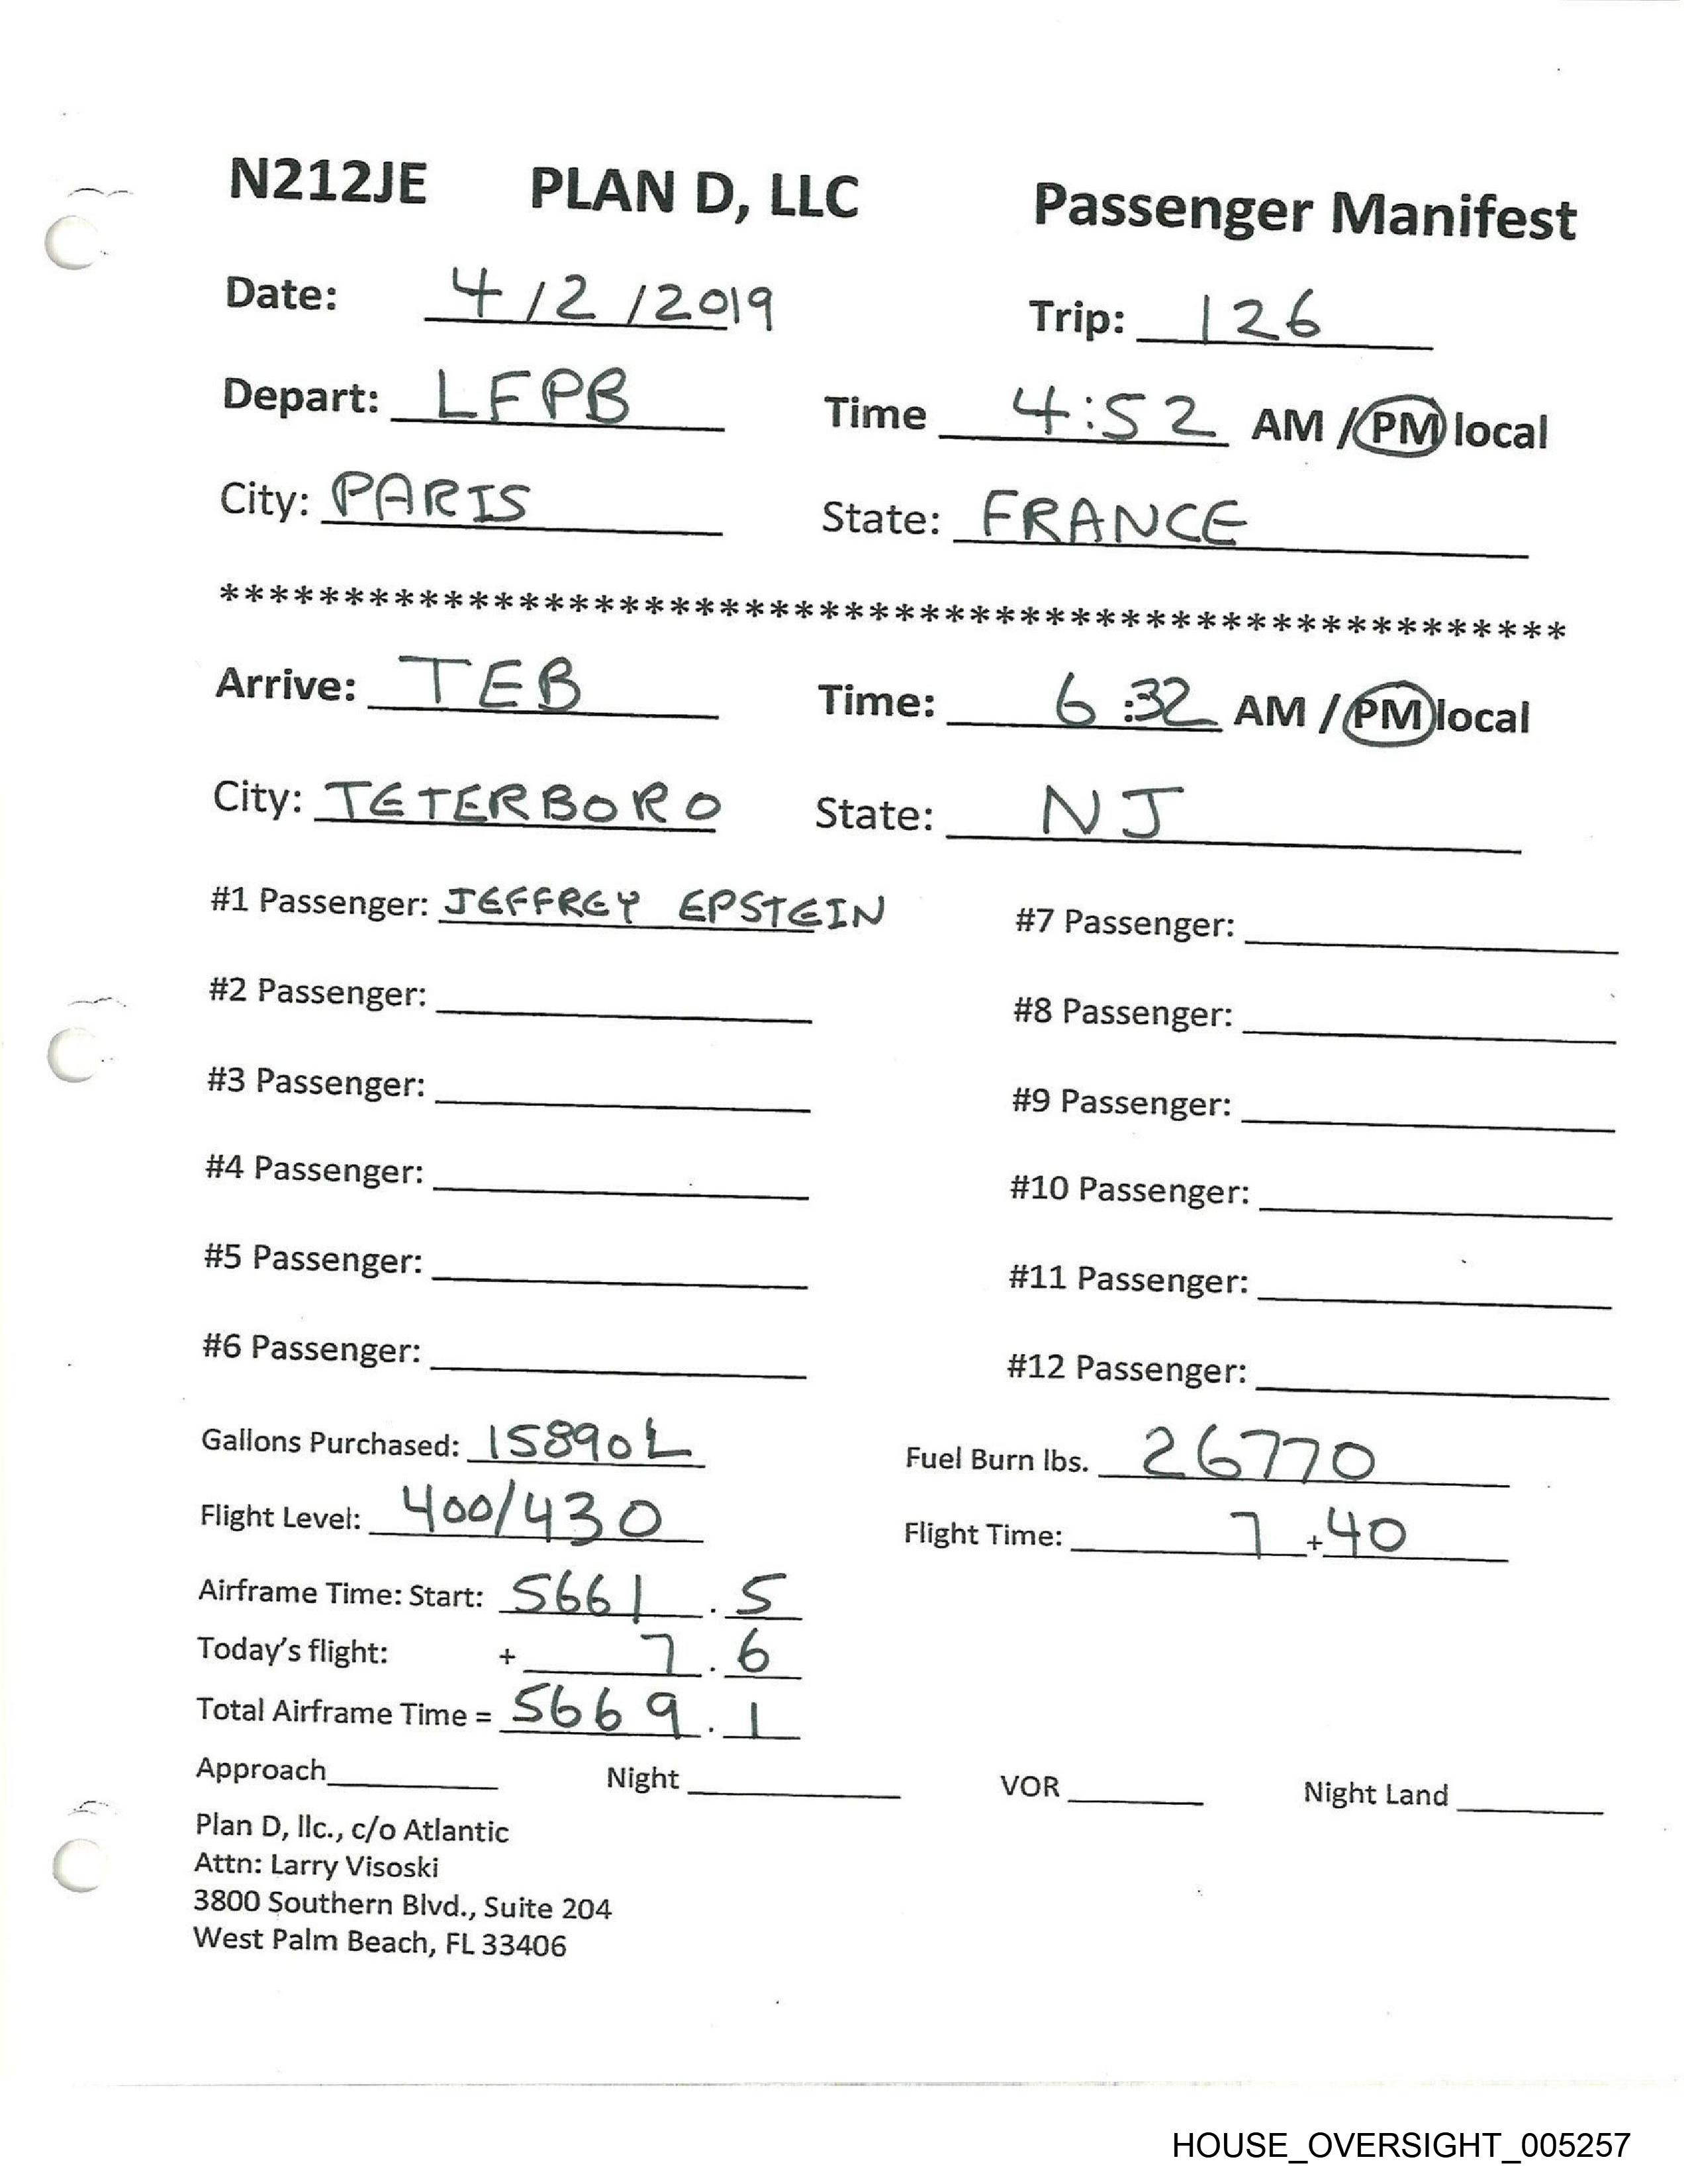 N212JE PLAN D, LLC Passenger Manifest
Date: 4/2/2019 Trip: 126
Depart: LFPB Time 4:52 AM / PM local
City: PARIS State: FRANCE
******************************************************
Arrive: TEB Time: 6:32 AM / PM local
City: TETERBORO State: NJ
#1 Passenger: JEFFREY EPSTEIN #7 Passenger:
#2 Passenger: #8 Passenger:
#3 Passenger: #9 Passenger:
#4 Passenger: #10 Passenger:
#5 Passenger: #11 Passenger:
#6 Passenger: #12 Passenger:
Gallons Purchased: 15890L Fuel Burn lbs. 26770
Flight Level: 400/430 Flight Time: 7 + 40
Airframe Time: Start: 5661 . 5
Today's flight: + 7 . 6
Total Airframe Time = 5669 . 1
Approach Night VOR Night Land
Plan D, llc., c/o Atlantic
Attn: Larry Visoski
3800 Southern Blvd., Suite 204
West Palm Beach, FL 33406
HOUSE_OVERSIGHT_005257